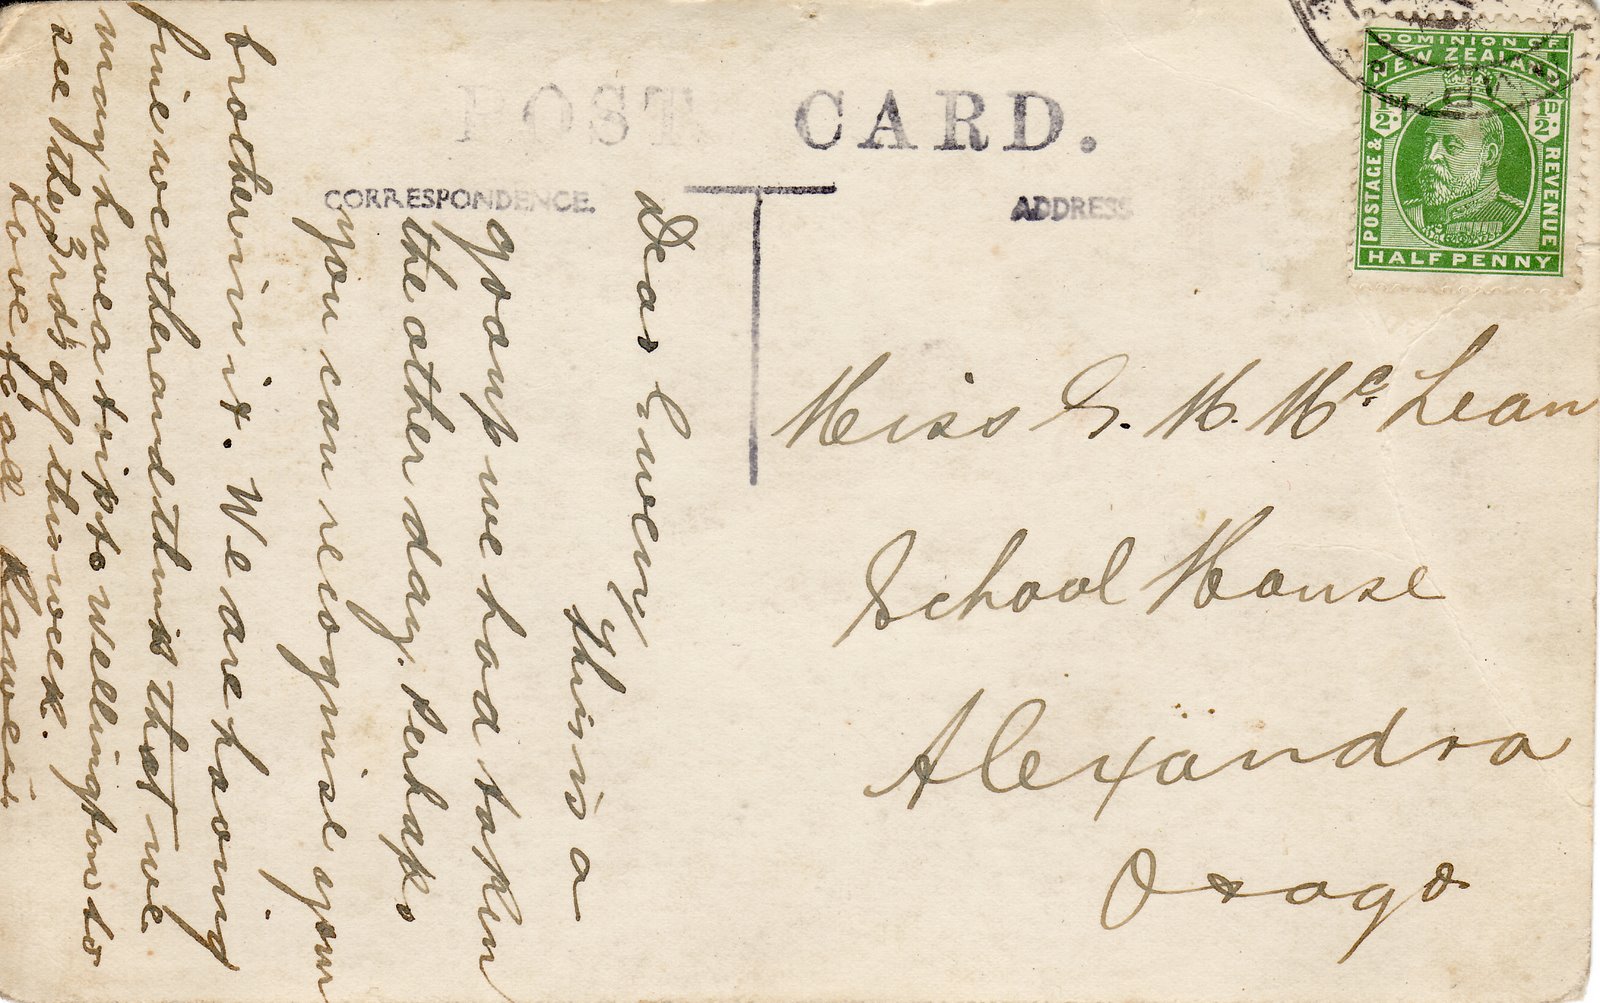 POST CARD.
CORRESPONDENCE.
ADDRESS
DOMINION OF
NEW ZEALAND
½D
½D
POSTAGE &
REVENUE
HALF PENNY
Dear Gweny
This is a
group we had taken
the other day. Perhaps
you can recognise your
brother in it. We are having
fine weather and think is that we
may have a trip to Wellington to
see the 3rds off this week.
Love to all
Miss G. M. McLean
School House
Alexandra
Otago